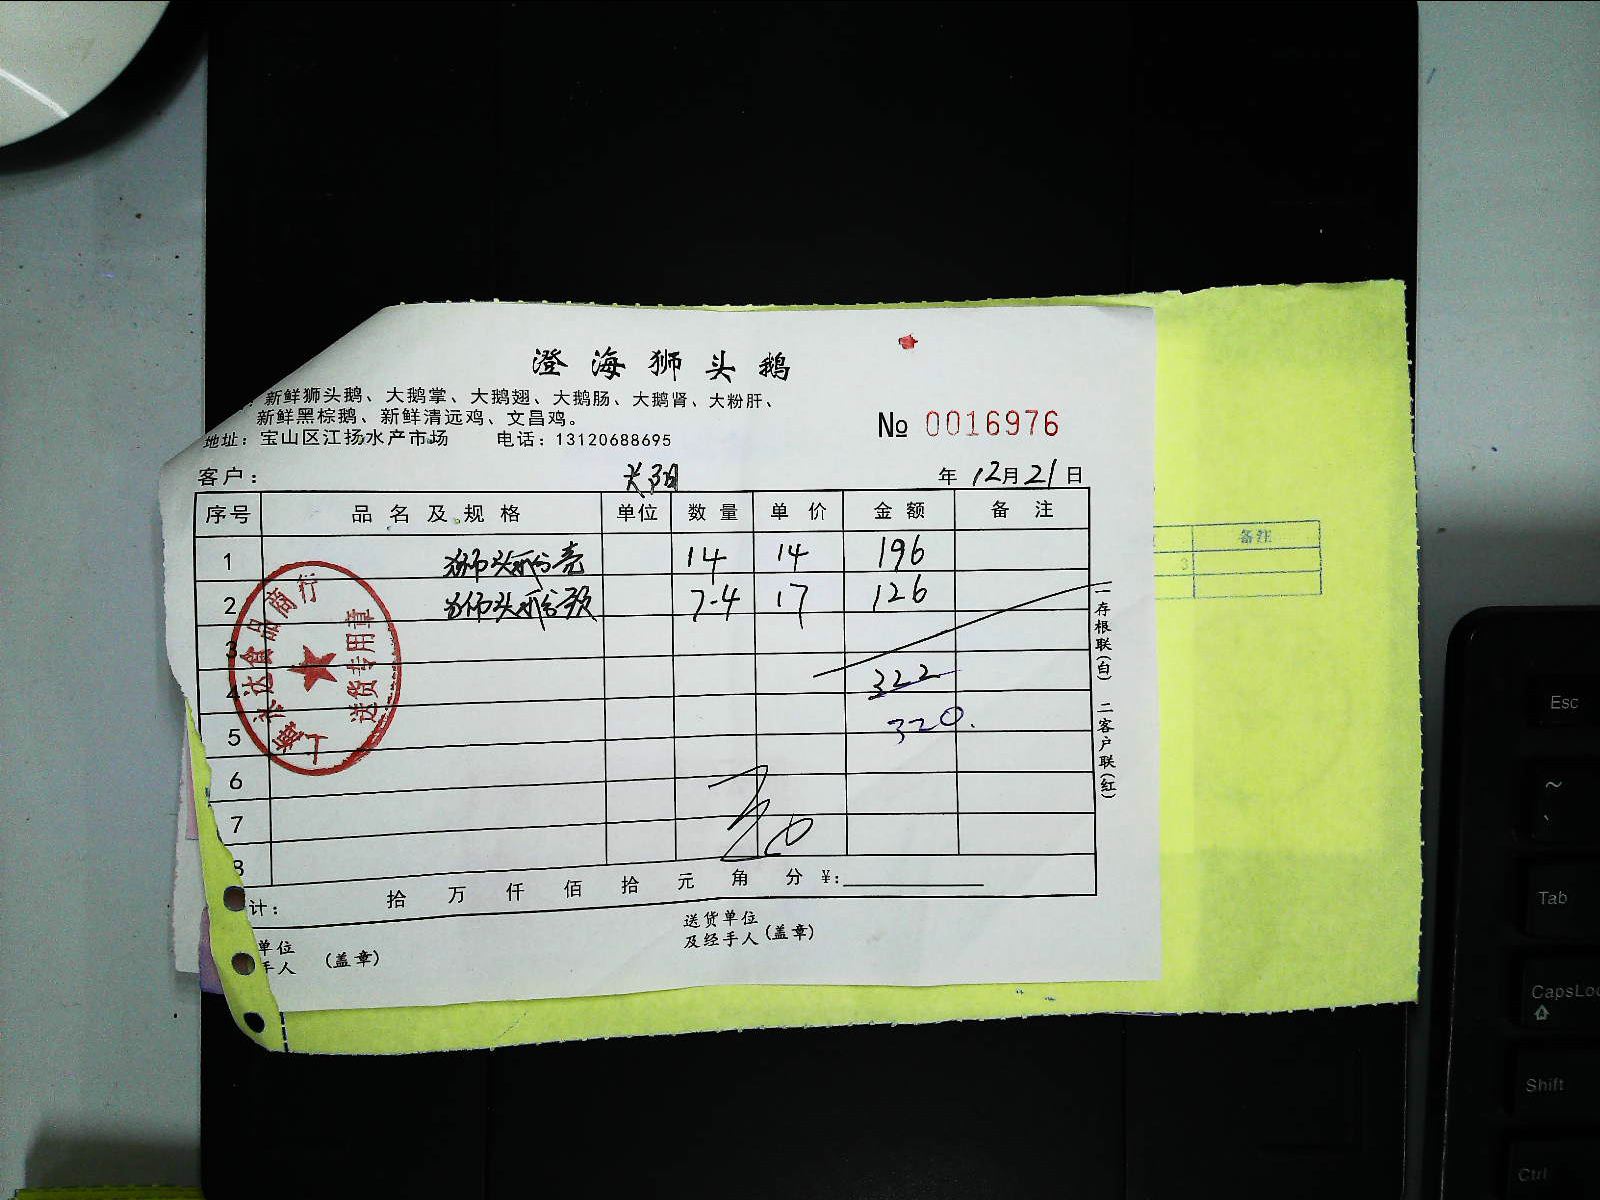 澄海狮头鹅
新鲜狮头鹅、大鹅掌、大鹅翅、大鹅肠、大鹅肾、大粉肝、
新鲜黑棕鹅、新鲜清远鸡、文昌鸡。
地址：宝山区江扬水产市场 电话：13120688695
№ 0016976
客户： 年 12月21日
序号 品名及规格 单位 数量 单价 金额 备注
1 狮头 14 14 196
2 狮头 7.4 17 126
3
4 322
5 320.
6
7
8
计： 拾 万 仟 佰 拾 元 角 分 ¥:
单位
手人 (盖章)
送货单位
及经手人(盖章)
一存根联(白) 二客户联(红)
食品商行
送货专用章
备注
3
Esc
~
Tab
CapsLoc
Shift
Ctrl